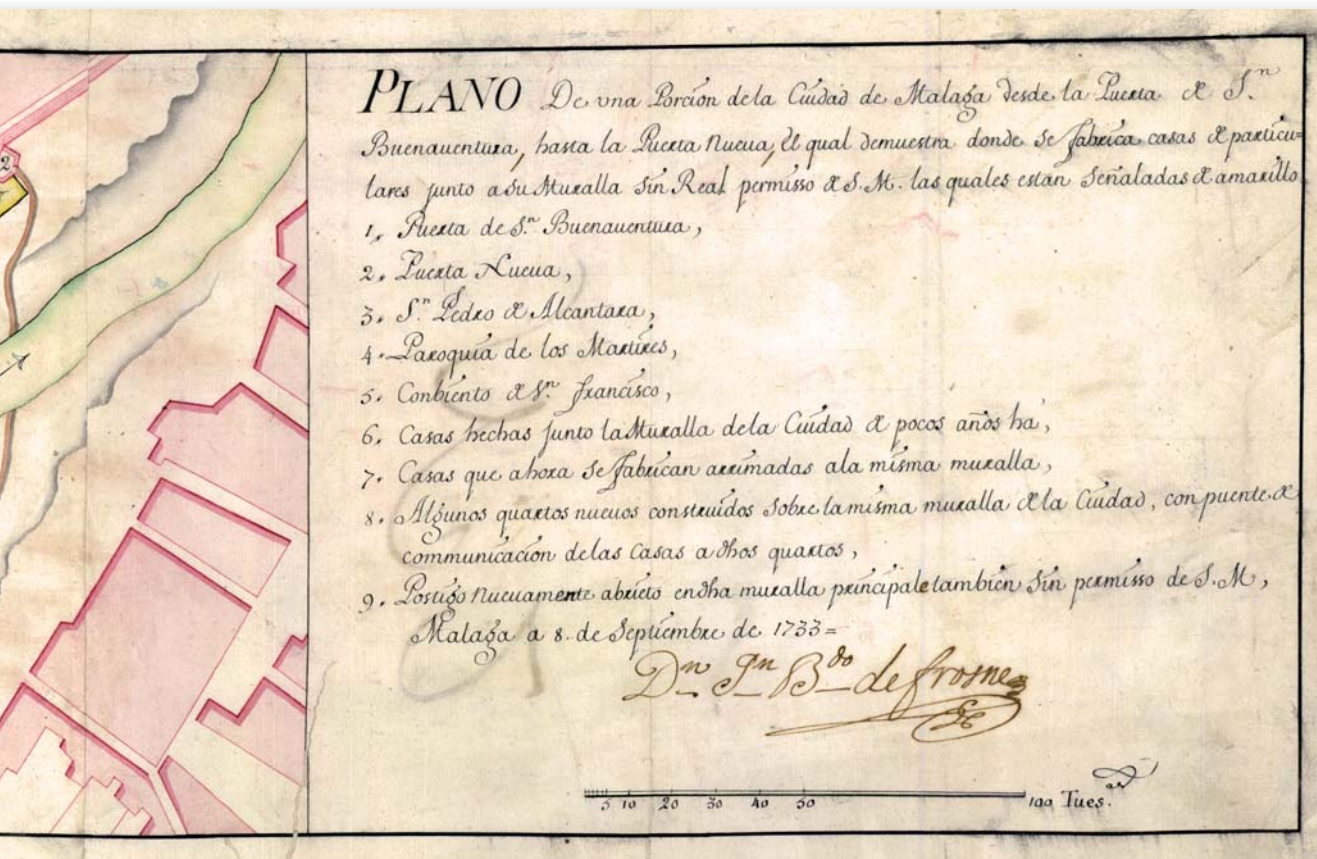 PLANO De vna Porcion dela Ciudad de Malaga desde la Puerta de Sn.
Buenauentura, hasta la Puerta Nueua, el qual demuestra donde se fabrica casas de particu=
lares junto asu Muralla sin Real permisso de S.M. las quales estan señaladas de amarillo
1, Puerta de Sn. Buenauentura,
2. Puerta Nueua,
3. Sn. Pedro de Alcantara,
4. Paroquia de los Martires,
5. Conbiento de Sn. francisco,
6. Casas hechas junto la Muralla dela Ciudad de pocos años ha,
7. Casas que ahora se fabrican arrimadas ala misma muralla,
8. Algunos quartos nueuos construidos sobre la misma muralla de la Ciudad, con puente de
communicacion delas Casas a dhos quartos,
9. Postigo nueuamente abierto endha muralla principal e tambien sin permisso de S.M,
Malaga a 8. de Septiembre de 1733=
Dn Jn Bdo de frosne
5 10 20 30 40 50 100 Tues.
2